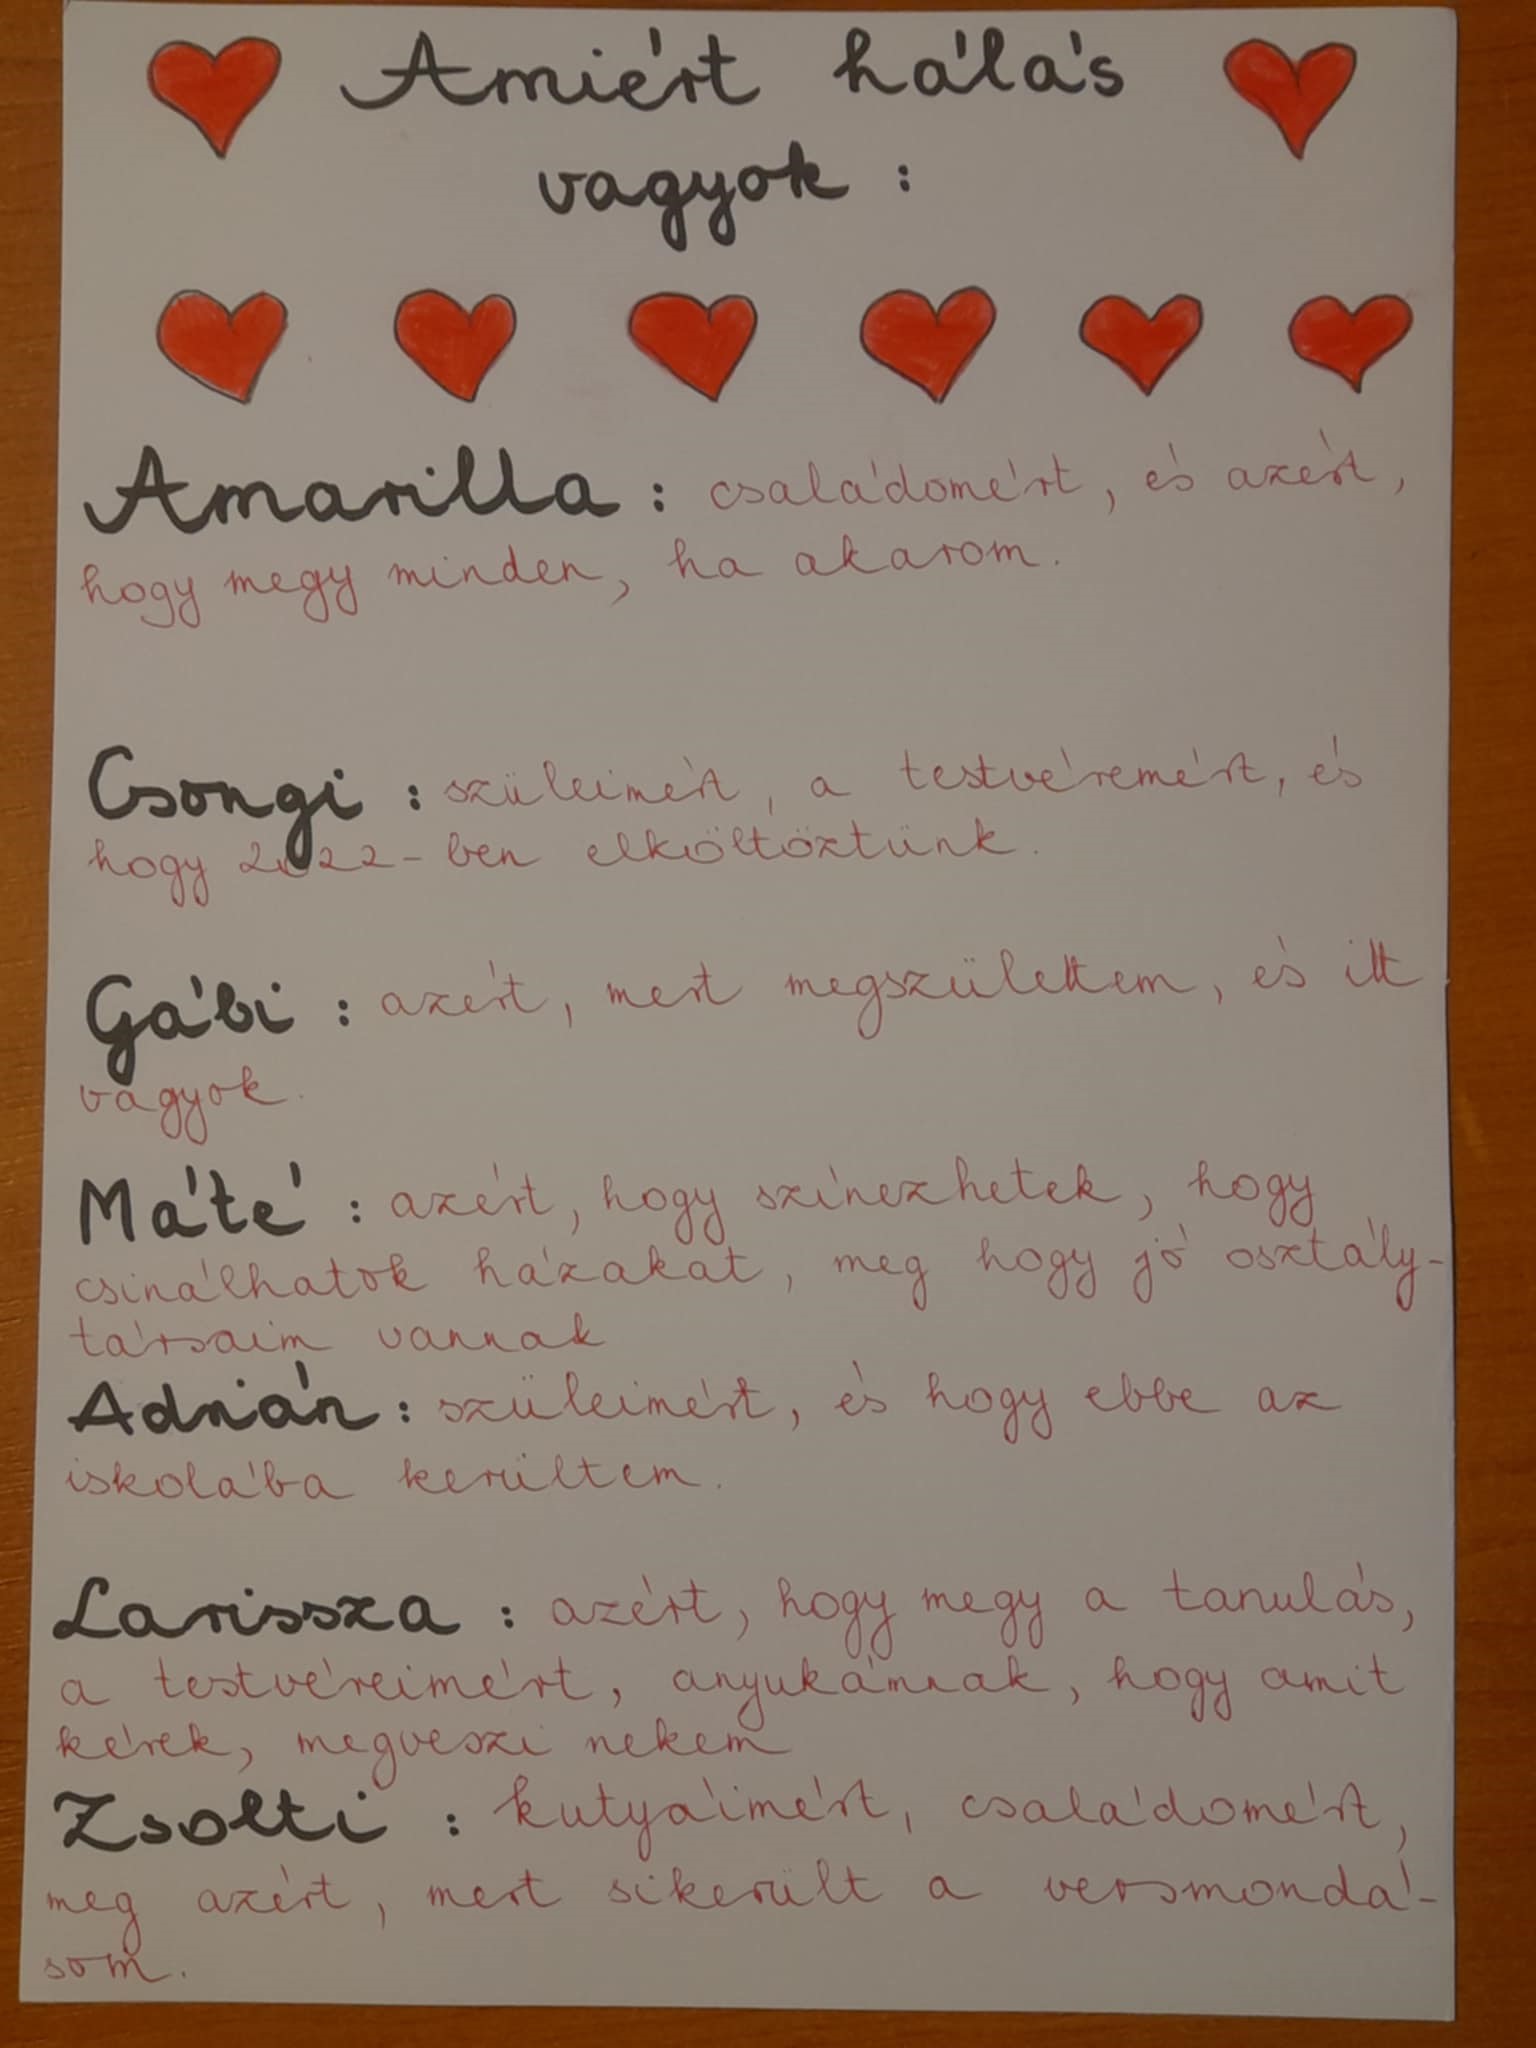 Amiért hálás
vagyok :
Amarilla : családomért, és azért,
hogy megy minden, ha akarom.
Csongi : szüleimért, a testvéremért, és
hogy 2022-ben elköltöztünk.
Gábi : azért, mert megszülettem, és itt
vagyok.
Máté : azért, hogy színezhetek, hogy
csinálhatok házakat, meg hogy jó osztály-
társaim vannak
Adrián : szüleimért, és hogy ebbe az
iskolába kerültem.
Larissza : azért, hogy megy a tanulás,
a testvéreimért, anyukámnak, hogy amit
kérek, megveszi nekem
Zsolti : kutyáimért, családomért,
meg azért, mert sikerült a versmondá-
som.